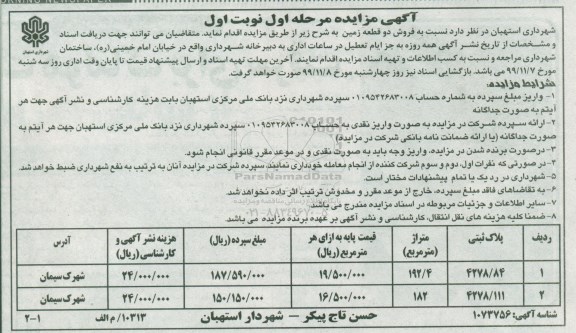 آگهی مزایده مرحله اول نوبت اول
شهرداری استهبان در نظر دارد نسبت به فروش دو قطعه زمین به شرح زیر از طریق مزایده اقدام نماید. متقاضیان می توانند جهت دریافت اسناد
و مشخصات از تاریخ نشر آگهی همه روزه به جز ایام تعطیل در ساعات اداری به دبیرخانه شهرداری واقع در خیابان امام خمینی(ره)، ساختمان
شهرداری مراجعه و نسبت به کسب اطلاعات و تهیه اسناد مزایده اقدام نمایند. آخرین مهلت تهیه اسناد و ارسال پیشنهاد قیمت تا پایان وقت اداری روز سه شنبه
مورخ ۹۹/۱۱/۷ می باشد. بازگشایی اسناد نیز روز چهارشنبه مورخ ۹۹/۱۱/۸ صورت خواهد گرفت.
شرایط مزایده:
۱- واریز مبلغ سپرده به شماره حساب ۰۱۰۹۵۴۲۶۸۳۰۰۸ سپرده شهرداری نزد بانک ملی مرکزی استهبان بابت هزینه کارشناسی و نشر آگهی جهت هر
آیتم به صورت جداگانه
۲- ارائه سپرده شرکت در مزایده به صورت واریز نقدی به حساب ۰۱۰۹۵۴۲۶۸۳۰۰۸ سپرده شهرداری نزد بانک ملی مرکزی استهبان جهت هر آیتم به
صورت جداگانه (یا ارائه ضمانت نامه بانکی شرکت در مزایده)
۳- درصورت برنده شدن در مزایده، واریز وجه باید به صورت نقدی و در موعد مقرر قانونی انجام شود.
۴- در صورتی که نفرات اول، دوم و سوم شرکت کننده از انجام معامله خودداری نمایند سپرده شرکت در مزایده آنان به ترتیب به نفع شهرداری ضبط خواهد شد.
۵- شهرداری در رد یک یا تمام پیشنهادات مختار است.
۶- به تقاضاهای فاقد مبلغ سپرده، خارج از موعد مقرر و مخدوش ترتیب اثر داده نخواهد شد.
۷- سایر اطلاعات و جزئیات مربوطه در اسناد مزایده مندرج می باشد.
۸- ضمنا کلیه هزینه های نقل انتقال، کارشناسی و نشر آگهی بر عهده برنده مزایده می باشد.
ردیف پلاک ثبتی متراژ (مترمربع) قیمت پایه به ازای هر مترمربع (ریال) مبلغ سپرده (ریال) هزینه نشر آگهی و کارشناسی (ریال) آدرس
۱ ۴۲۷۸/۸۴ ۱۹۲/۴ ۱۹/۵۰۰/۰۰۰ ۱۸۷/۵۹۰/۰۰۰ ۲۴/۰۰۰/۰۰۰ شهرک سیمان
۲ ۴۲۷۸/۱۱۱ ۱۸۲ ۱۶/۵۰۰/۰۰۰ ۱۵۰/۱۵۰/۰۰۰ ۲۴/۰۰۰/۰۰۰ شهرک سیمان
شناسه آگهی: ۱۰۷۳۷۵۶ حسن تاج پیکر – شهردار استهبان ۱۰۳۱۳/م الف ۲-۱